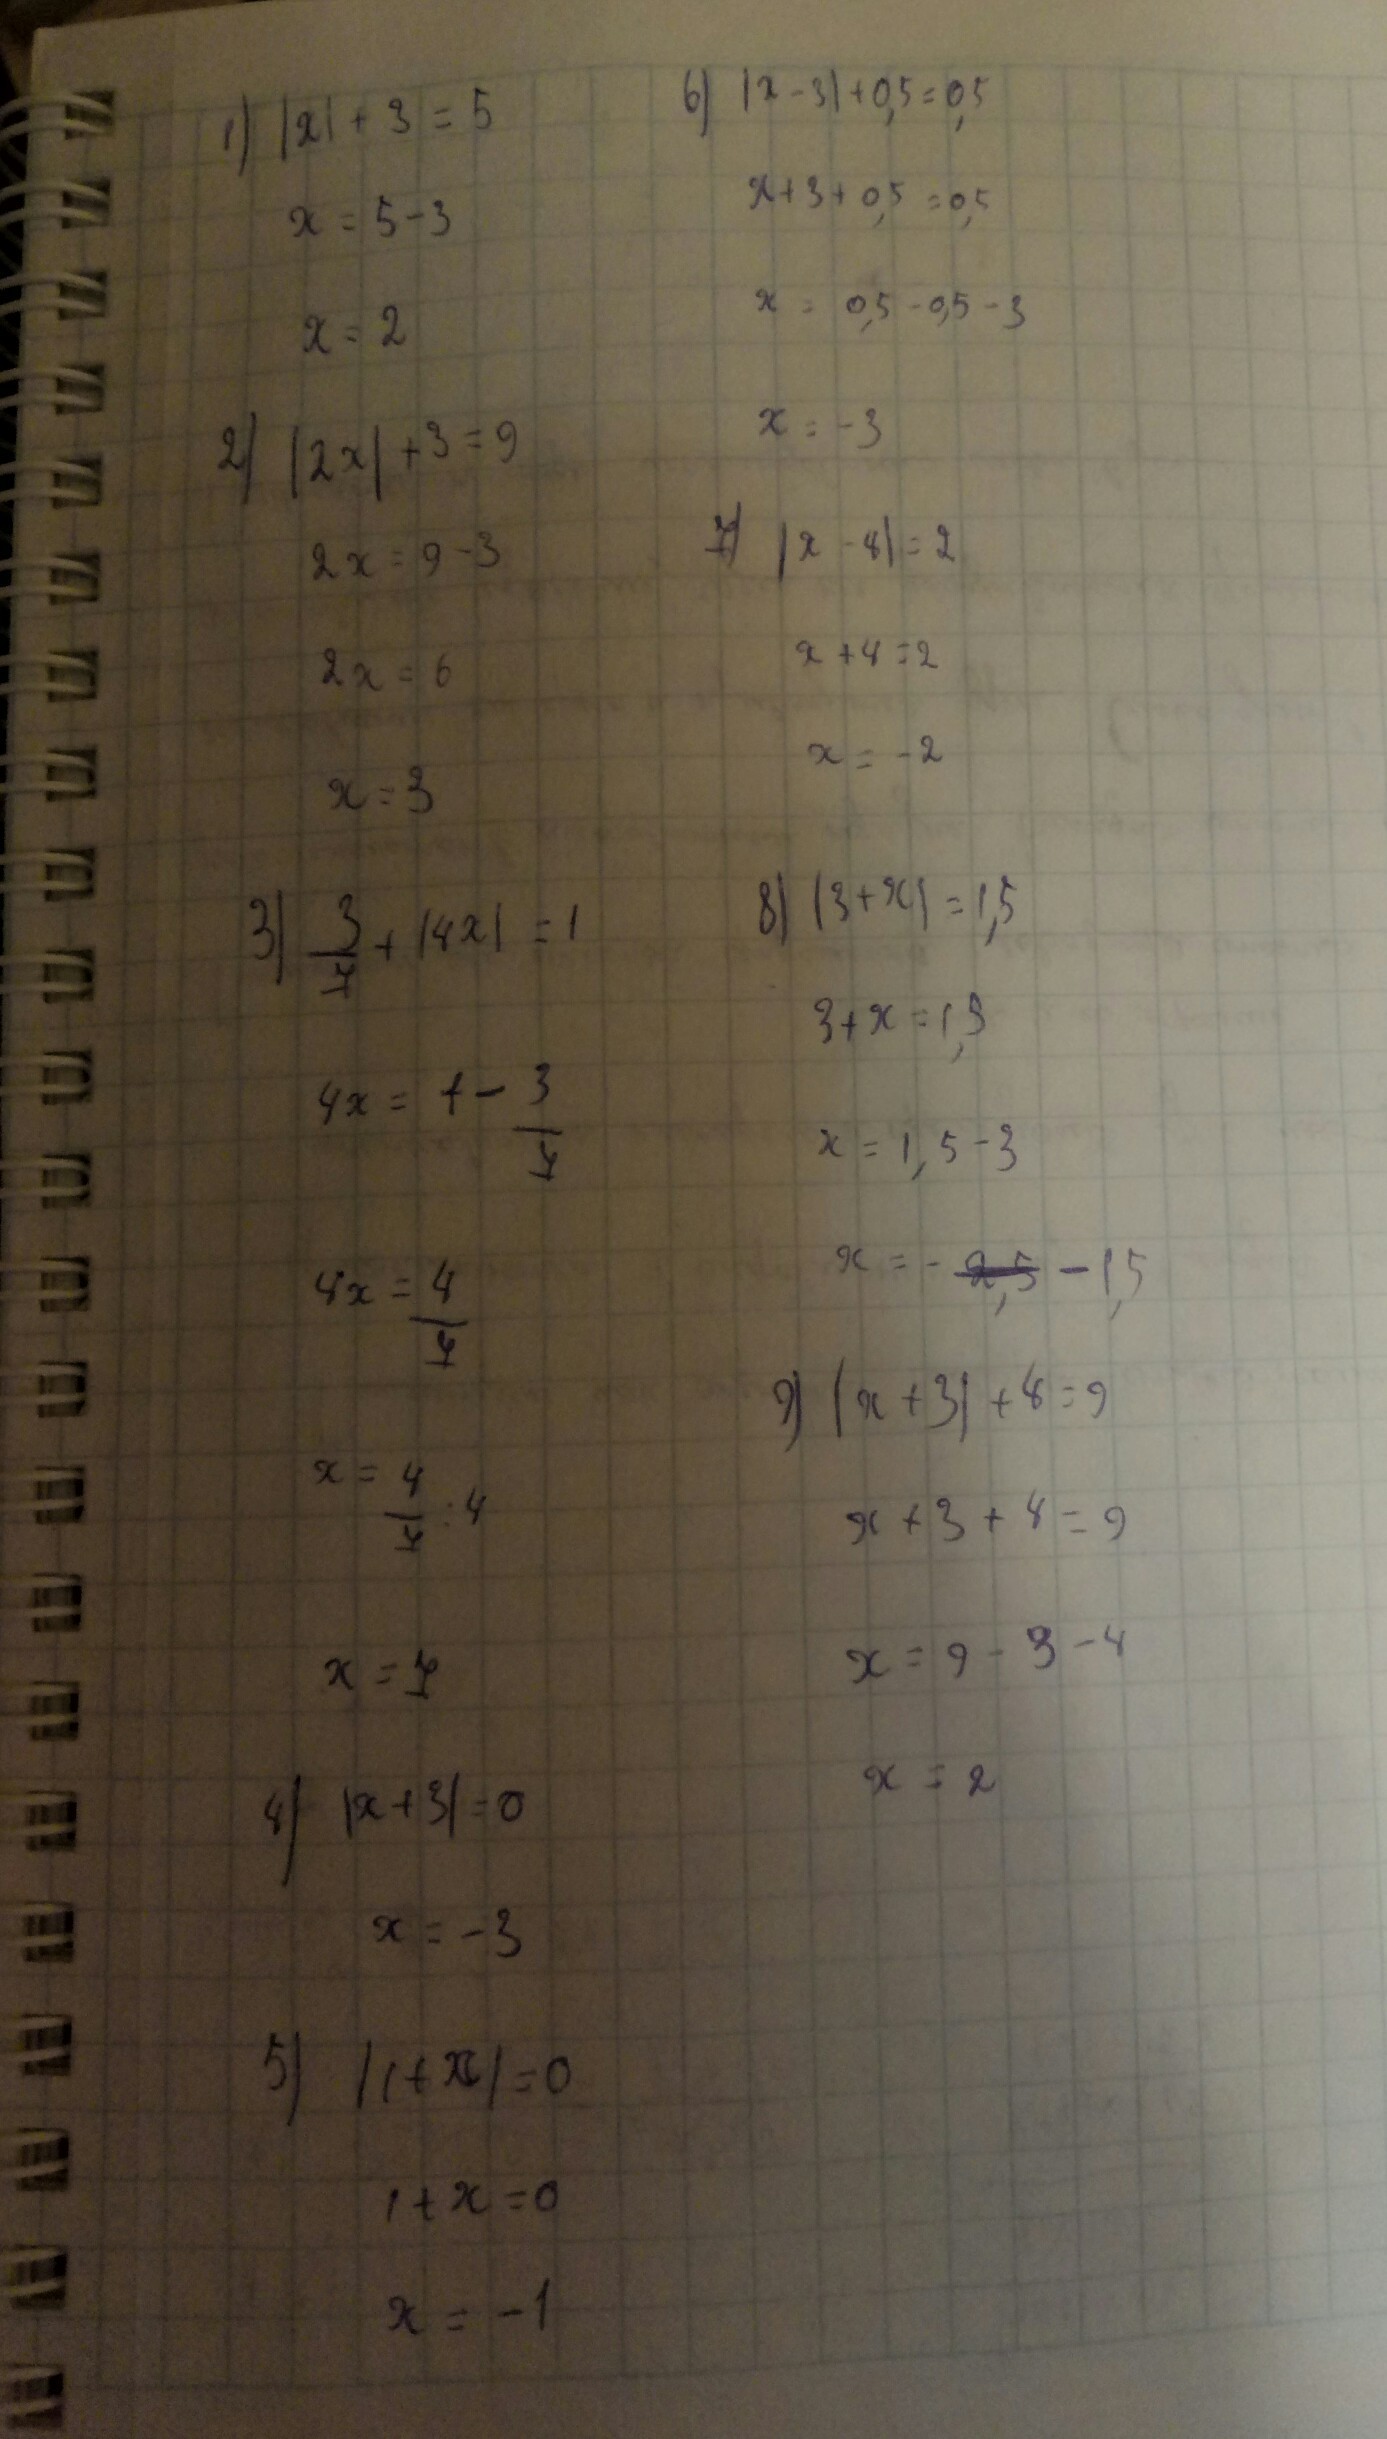 1) |x| + 3 = 5
x = 5 - 3
x = 2
2) |2x| + 3 = 9
2x = 9 - 3
2x = 6
x = 3
3) 3/7 + |4x| = 1
4x = 1 - 3/7
4x = 4/7
x = 4/7 : 4
x = 7
4) |x + 3| = 0
x = -3
5) |1 + x| = 0
1 + x = 0
x = -1
6) |x - 3| + 0,5 = 0,5
x + 3 + 0,5 = 0,5
x = 0,5 - 0,5 - 3
x = -3
7) |x - 4| = 2
x + 4 = 2
x = -2
8) |3 + x| = 1,5
3 + x = 1,3
x = 1,5 - 3
x = - 2,5 - 1,5
9) |x + 3| + 4 = 9
x + 3 + 4 = 9
x = 9 - 3 - 4
x = 2